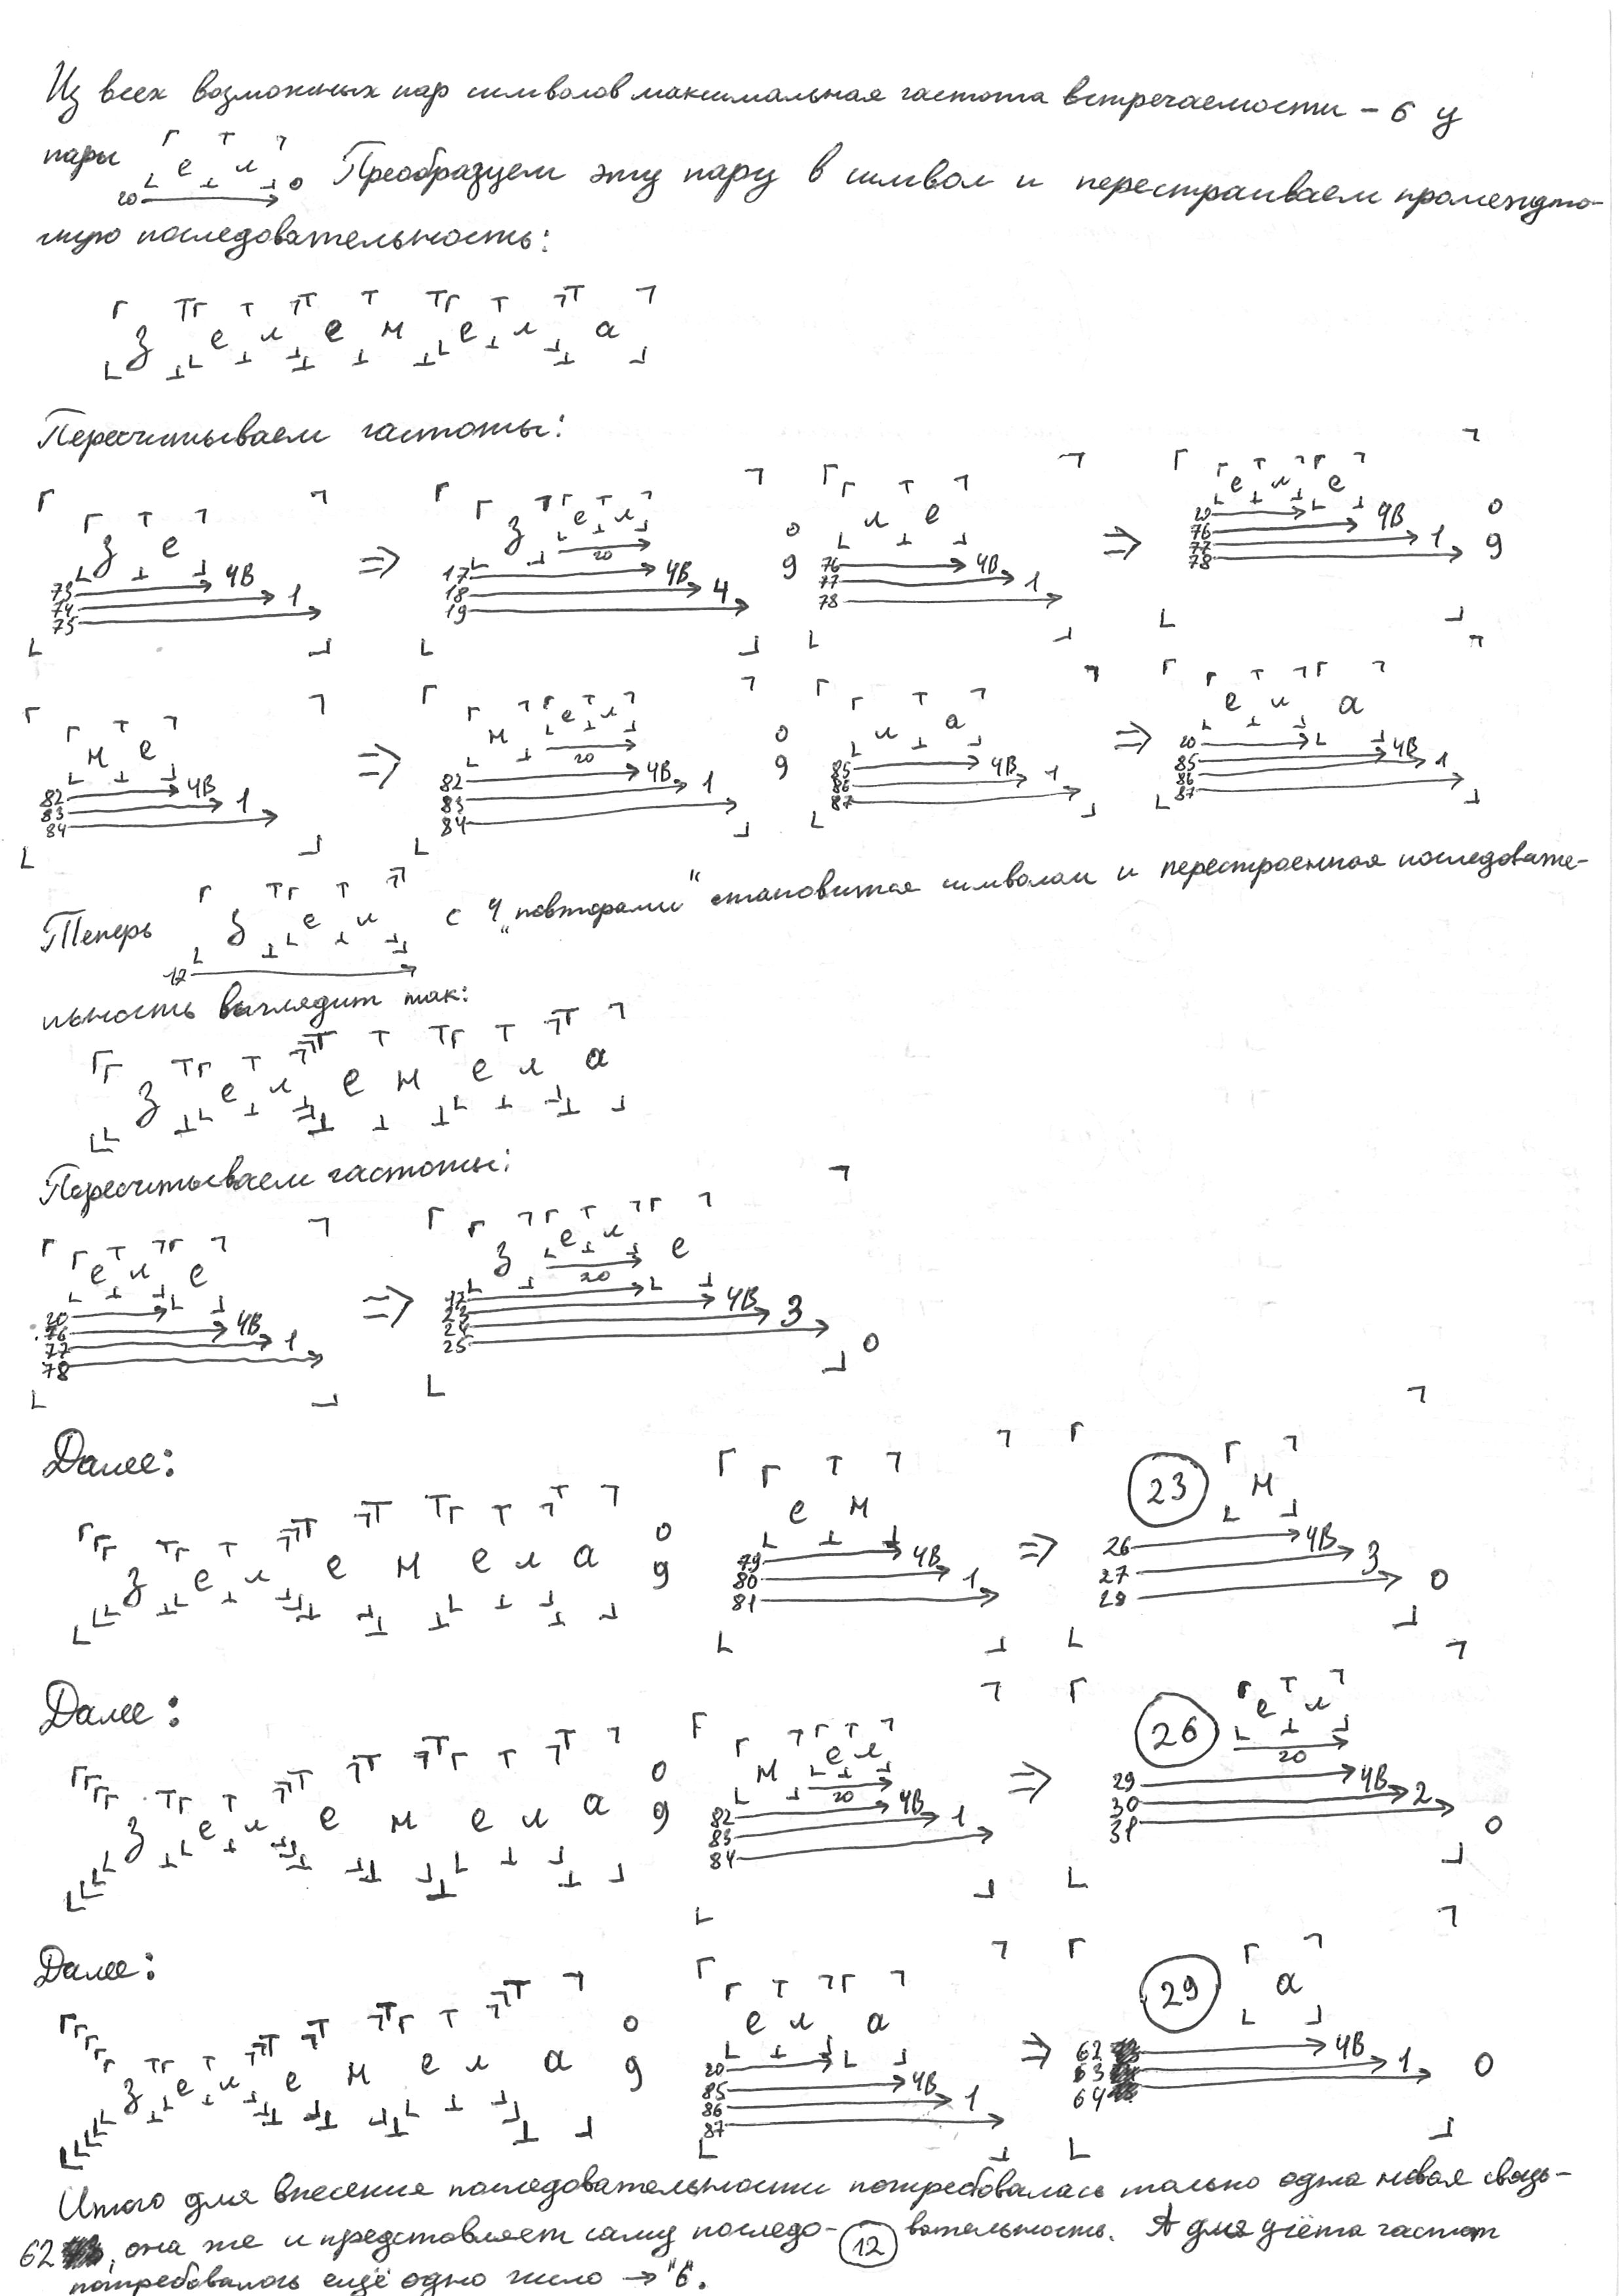 Из всех возможных пар символов максимальная частота встречаемости – 6 у
пары е л 20 0 Преобразуем эту пару в символ и перестраиваем промежуто-
чную последовательность:
з е л е м е л а
Пересчитываем частоты:
з е 73 ЧВ 74 1 75 ⇒ з е л 20 17 ЧВ 18 4 19 0 9 л е 76 ЧВ 77 1 78 ⇒ е л е 20 76 ЧВ 77 1 78 0 9
м е 82 ЧВ 83 1 84 ⇒ м е л 20 82 ЧВ 83 1 84 0 9 л а 85 ЧВ 86 1 87 ⇒ е л а 20 85 ЧВ 86 1 87
Теперь з е л 17 с 4 „повторами“ становится символом и перестроенная последовате-
льность выглядит так:
з е л е м е л а
Пересчитываем частоты:
е л е 20 76 ЧВ 77 1 78 ⇒ з е л 20 е 17 23 ЧВ 24 3 25 0
Далее:
з е л е м е л а 0 9 е м 79 ЧВ 80 1 81 ⇒ 23 м 26 ЧВ 27 3 28 0
Далее:
з е л е м е л а 0 9 м е л 20 82 ЧВ 83 1 84 ⇒ 26 е л 20 29 ЧВ 30 2 31 0
Далее:
з е л е м е л а 0 9 е л а 20 85 ЧВ 86 1 87 ⇒ 29 а 62 ЧВ 63 1 64 0
Итого для внесения последовательности потребовалась только одна новая связь–
62, она же и представляет саму последо- 12 вательность. А для учёта частот
потребовалось ещё одно число → "6".